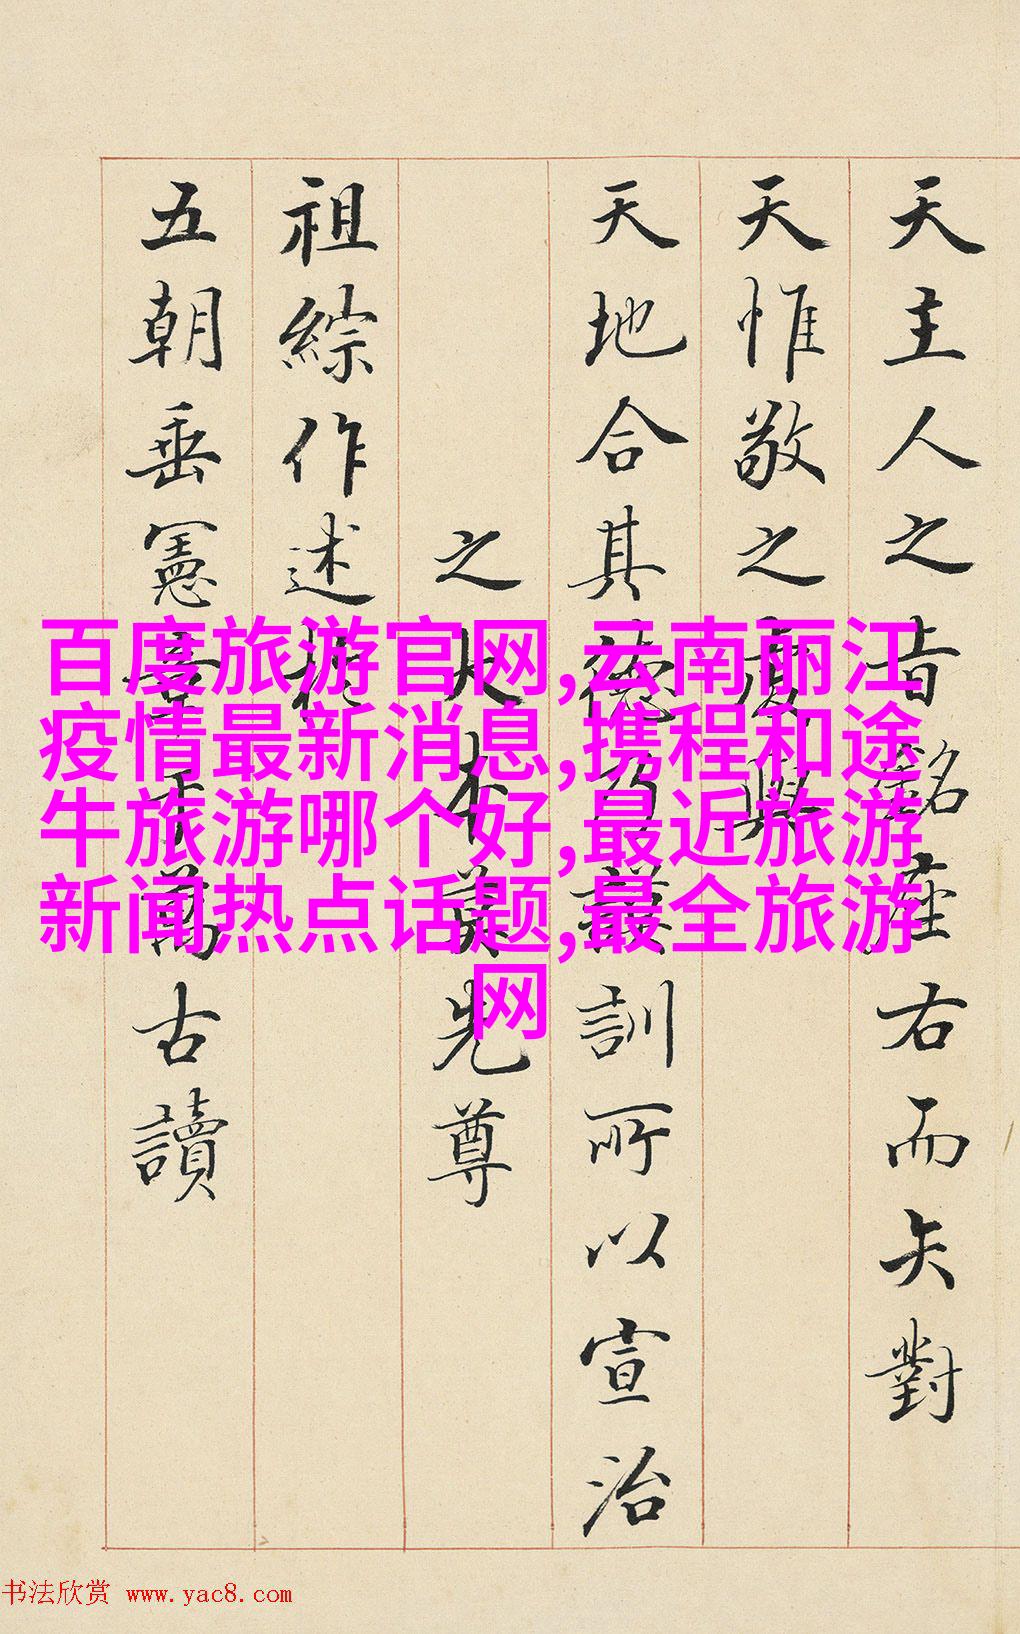 天主人之旨銘座右而矢對
天惟敬之虔興
天地合其德乃謨訓所以宣治
之大本莫先尊
祖綜作述
五朝垂憲萬古讀
百度旅游官网,云南丽江
疫情最新消息,携程和途
牛旅游哪个好,最近旅游
新闻热点话题,最全旅游
网
书法欣赏 www.yac8.com